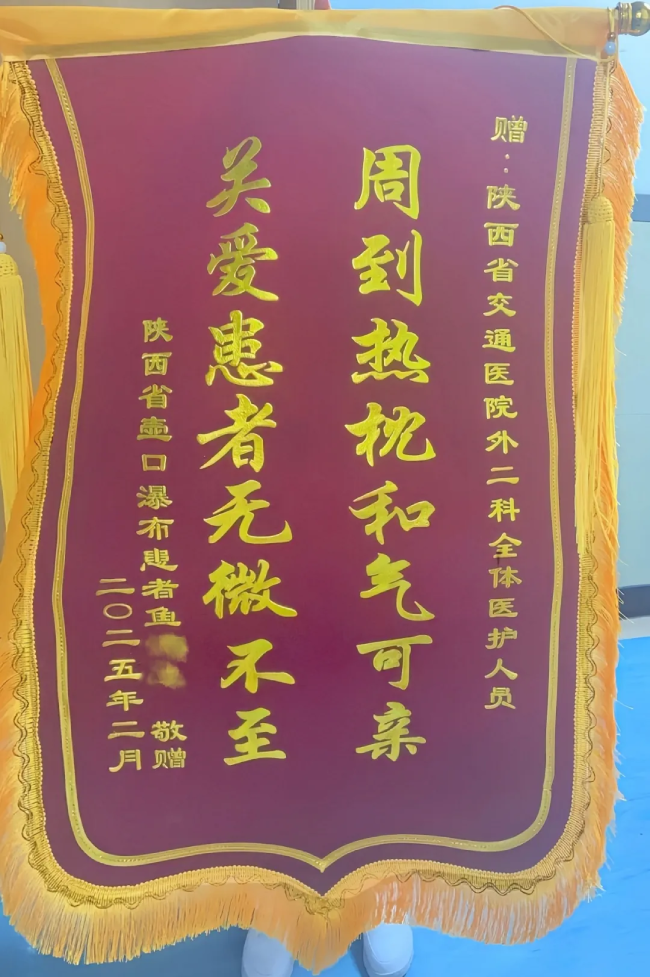 赠：陕西省交通医院外二科全体医护人员
周到热枕和气可亲
关爱患者无微不至
陕西省壶口瀑布患者鱼
敬赠
二〇二五年二月